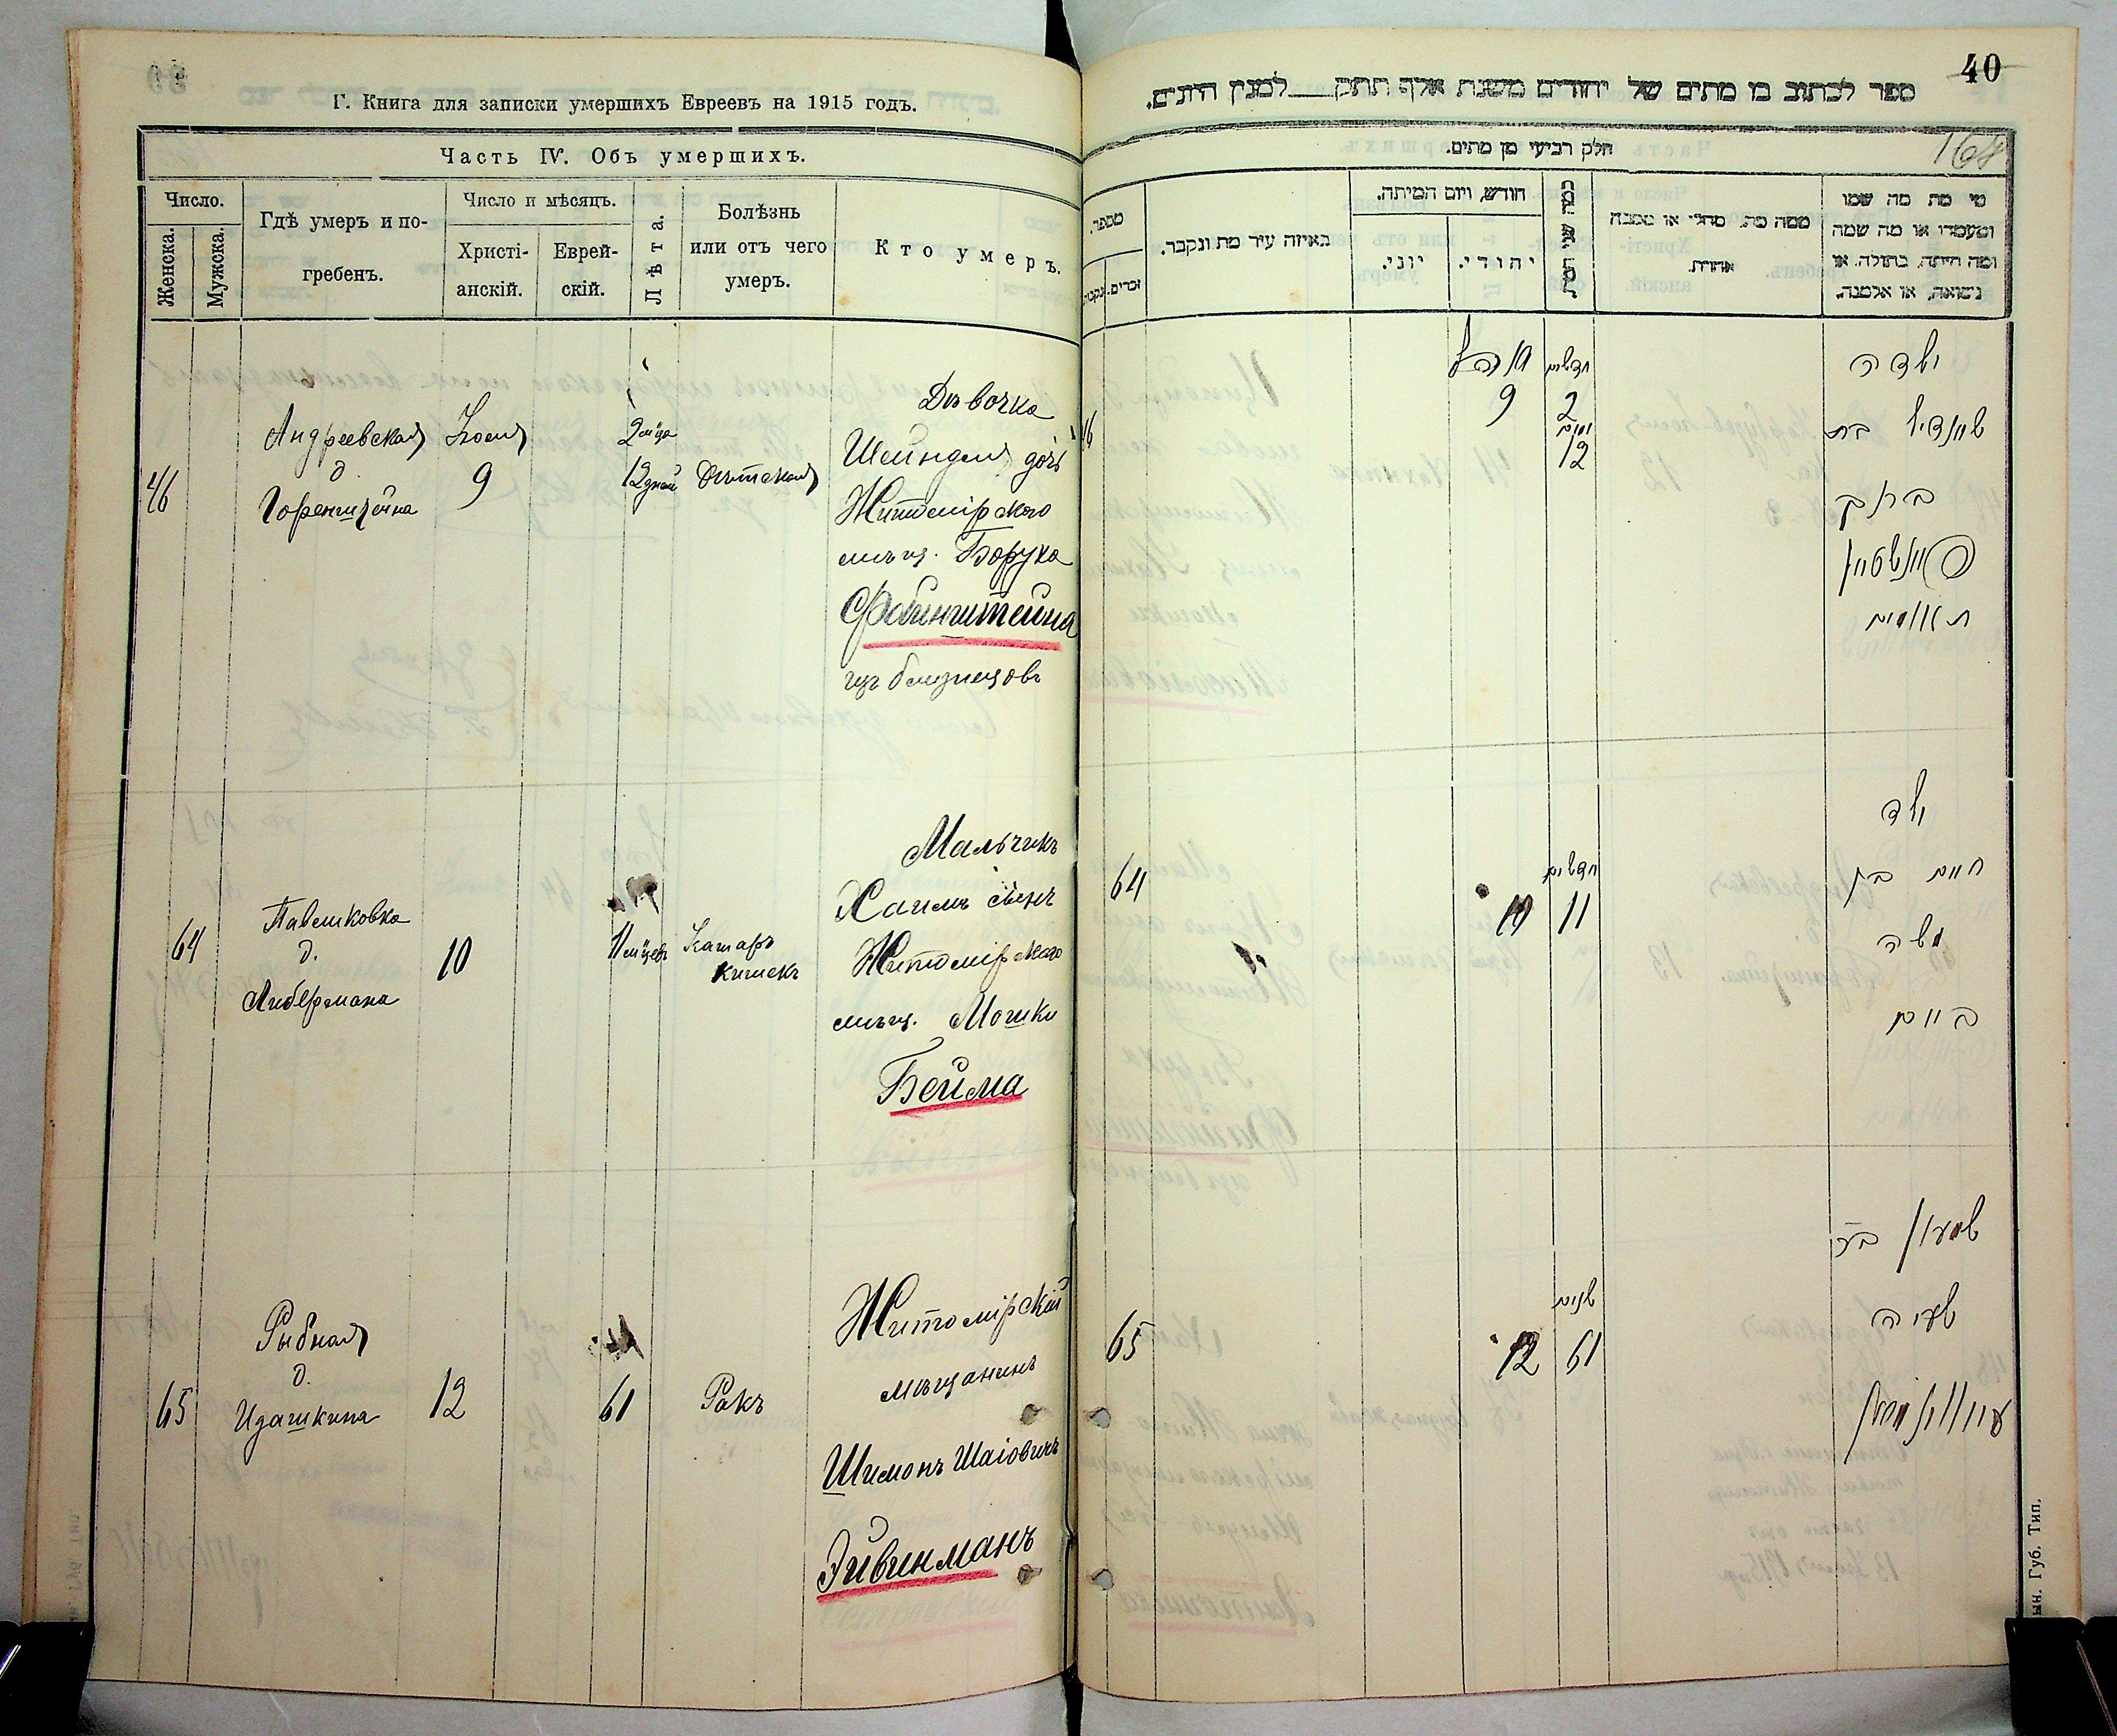 Г. Книга для записки умершихъ Евреевъ на 1915 годъ.
Часть IV. Объ умершихъ.
Число.
Женска.
Мужска.
Гдѣ умеръ и по-
гребенъ.
Число и мѣсяцъ.
Христі-
анскій.
Еврей-
скій.
Лѣта.
Болѣзнь
или отъ чего
умеръ.
Кто умеръ.
46
Андреевская
д.
9
2 м-ца
12 дней
Дѣвочка
Шейндля дочь
Житомірского
мѣщ. Боруха
Файнштейна
изъ близнецовъ
64
Павликовка
д.
Либермана
10
11 м-цевъ
Катаръ
кишекъ
Мальчикъ
Хаимъ сынъ
Житомірского
мѣщ. Мошки
Бейма
65
Рыбная
д.
Идашкина
12
61
Ракъ
Житомірскій
мѣщанинъ
Шимонъ Шаіовичъ
Эйвинманъ
40
ספר לכתוב בו מתים של יהודים משנת אלף תתק למנין היונים.
168
חלק רביעי מן מתים.
מספר.
זכרים.
באיזה עיר מת ונקבר.
חודש, ויום המיתה.
יוני.
יהודי.
ממה מת. מחלי או מסבה
אחרת.
מי מת מה שמו
ומעמדו או מה שמה
ומה היתה, בתולה. או
נשואה, או אלמנה.
46
9
חדשים
2
ימים
12
ילדה
שיינדיל בת
ברוך
פיינשטיין
תאומים
64
10
חדשים
11
ילד
חיים בן
משה
ביים
65
12
שנים
61
שמעון בר
ישעיה
ын. Губ. Тип.